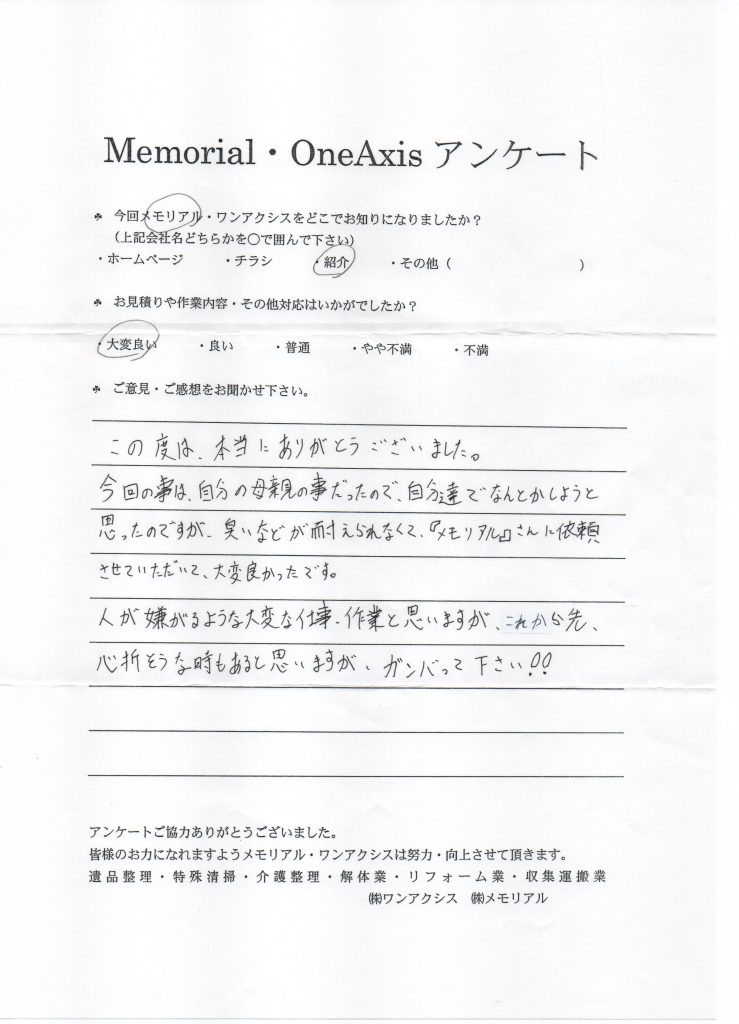 Memorial・OneAxis アンケート
♣ 今回メモリアル・ワンアクシスをどこでお知りになりましたか?
(上記会社名どちらかを〇で囲んで下さい)
・ホームページ ・チラシ ・紹介 ・その他( )
♣ お見積りや作業内容・その他対応はいかがでしたか?
・大変良い ・良い ・普通 ・やや不満 ・不満
♣ ご意見・ご感想をお聞かせ下さい。
この度は、本当にありがとうございました。
今回の事は、自分の母親の事だったので、自分達でなんとかしようと
思ったのですが、臭いなどが耐えられなくて、『メモリアル』さんに依頼
させていただいて、大変良かったです。
人が嫌がるような大変な仕事、作業と思いますが、これから先、
心折そうな時もあると思いますが、ガンバって下さい!!
アンケートご協力ありがとうございました。
皆様のお力になれますようメモリアル・ワンアクシスは努力・向上させて頂きます。
遺品整理・特殊清掃・介護整理・解体業・リフォーム業・収集運搬業
㈱ワンアクシス ㈱メモリアル